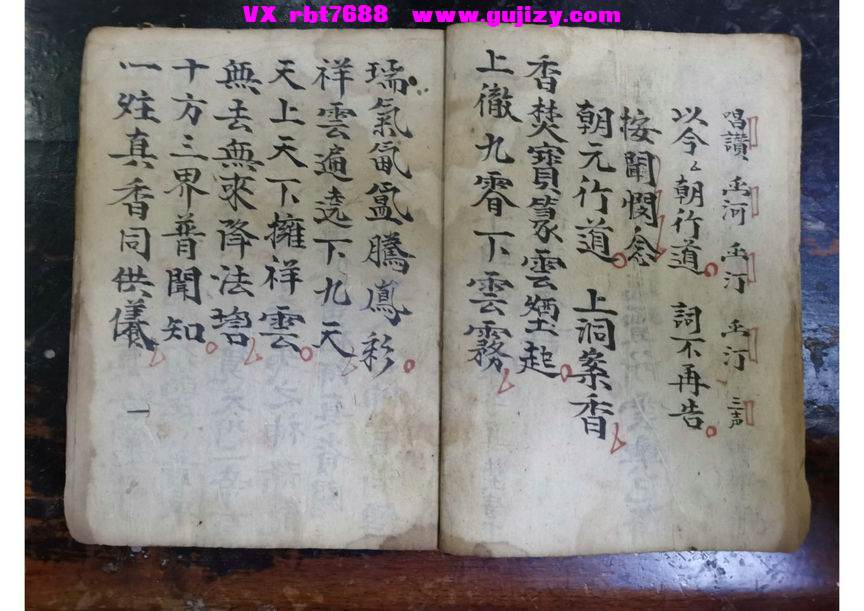 VX rbt7688 www.gujizy.com
唱讃 河 汀 汀 三声
以今々朝行道 詞不再告
按聞憫念
朝元行道 上洞案香
香焚寳篆雲煙起
上徹九霄下雲霧
瑞氣氤氳騰鳳彩
祥雲遍遶下九天
天上天下擁祥雲
無去無來降法
十方三界普聞知
一炷真香同供儀
一